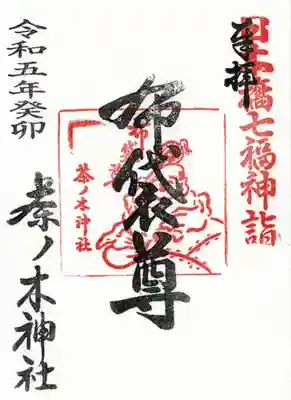 日本橋七福神詣
奉拝
布袋尊
茶ノ木神社
令和五年癸卯
茶ノ木神社